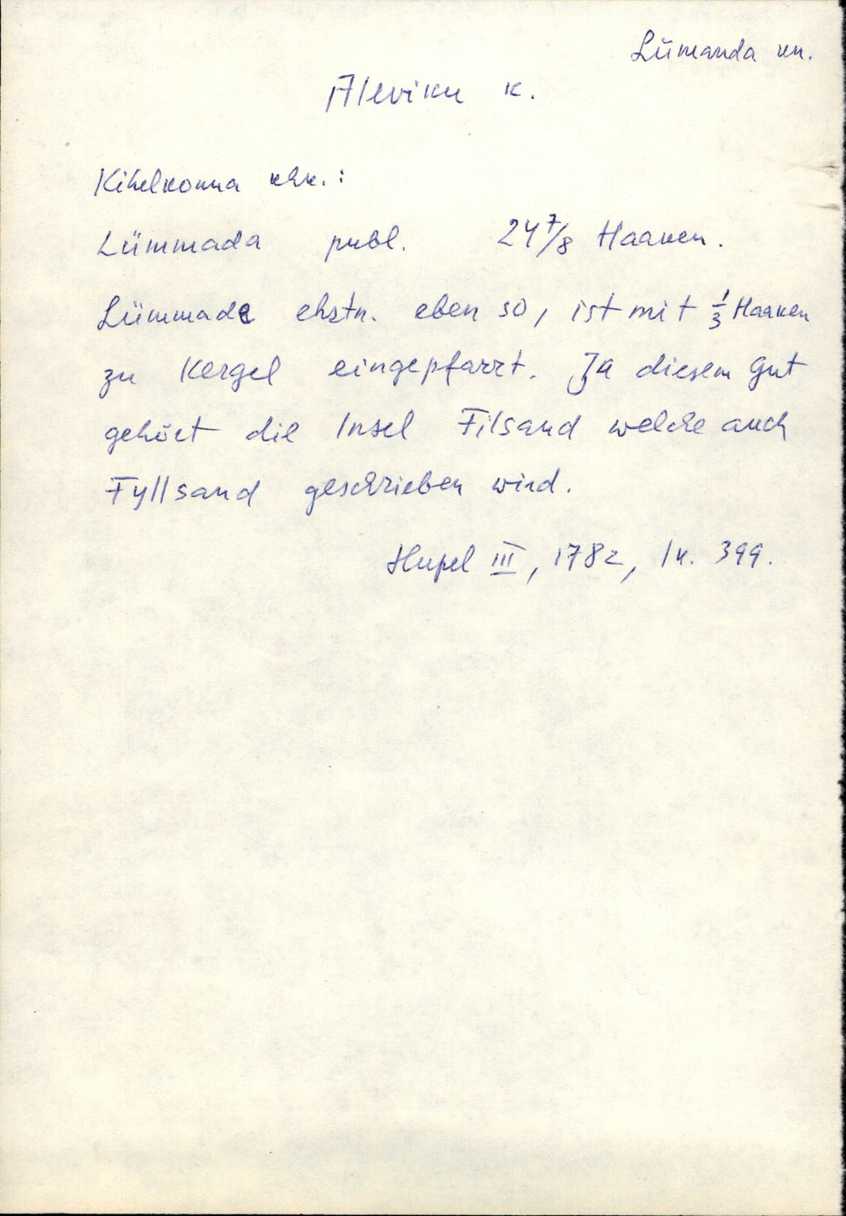 Lümanda kn.
Aleviku k.
Kihelkonna khk.:
Lümmada publ. 24 7/8 Haaken.
Lümmade ehstn. eben so, ist mit 1/3 Haaken
zu Kergel eingepfarrt. Zu diesem Gut
gehört die Insel Filsand welche auch
Fyllsand geschrieben wird.
Hupel III, 1782, lk. 399.